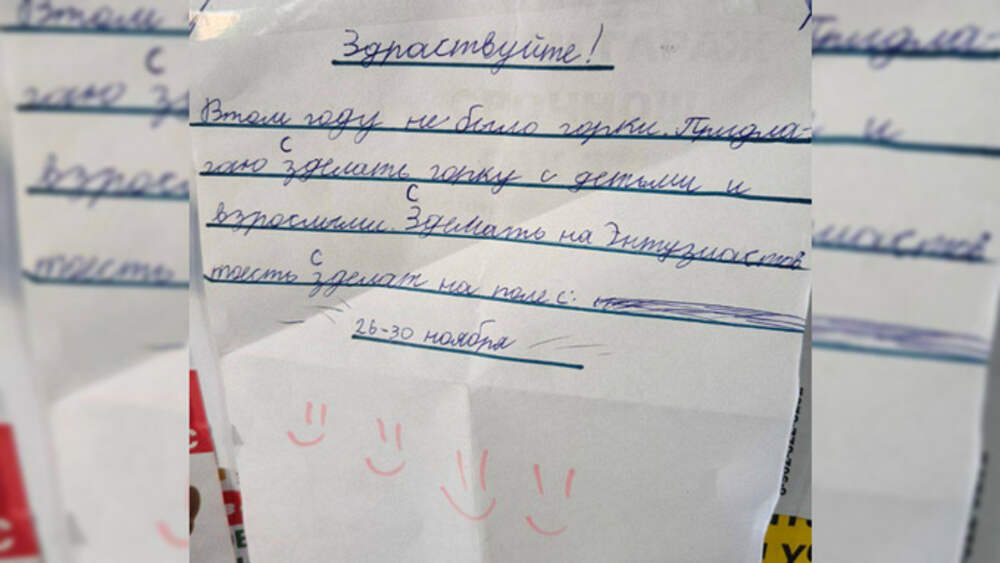 Здраствуйте!
Втом году не было горки. Придла-
с
гаю зделать горку с детьми и
С
взрослыми. Зделать на Энтузиастов
с
тоесть зделат на поле с:
26-30 ноября